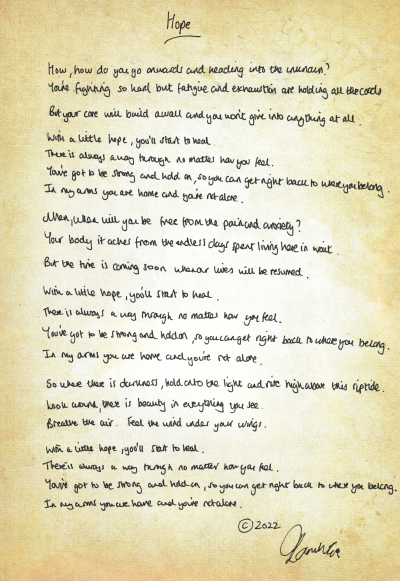 Hope
How, how do you go onwards and heading into the unknown?
You're fighting so hard but fatigue and exhaustion are holding all the cards
But your core will build a wall and you won't give into anything at all.
With a little hope, you'll start to heal.
There is always a way through no matter how you feel.
You've got to be strong and hold on, so you can get right back to where you belong.
In my arms you are home and you're not alone.
When, when will you be free from the pain and anxiety?
Your body it aches from the endless days spent living here in wait.
But the time is coming soon when our lives will be resumed.
With a little hope, you'll start to heal.
There is always a way through no matter how you feel.
You've got to be strong and hold on, so you can get right back to where you belong.
In my arms you are home and you're not alone.
So where there is darkness, hold onto the light and rise high above this riptide.
Look around, there is beauty in everything you see.
Breathe the air. Feel the wind under your wings.
With a little hope, you'll start to heal.
There is always a way through no matter how you feel.
You've got to be strong and hold on, so you can get right back to where you belong.
In my arms you are home and you're not alone.
© 2022